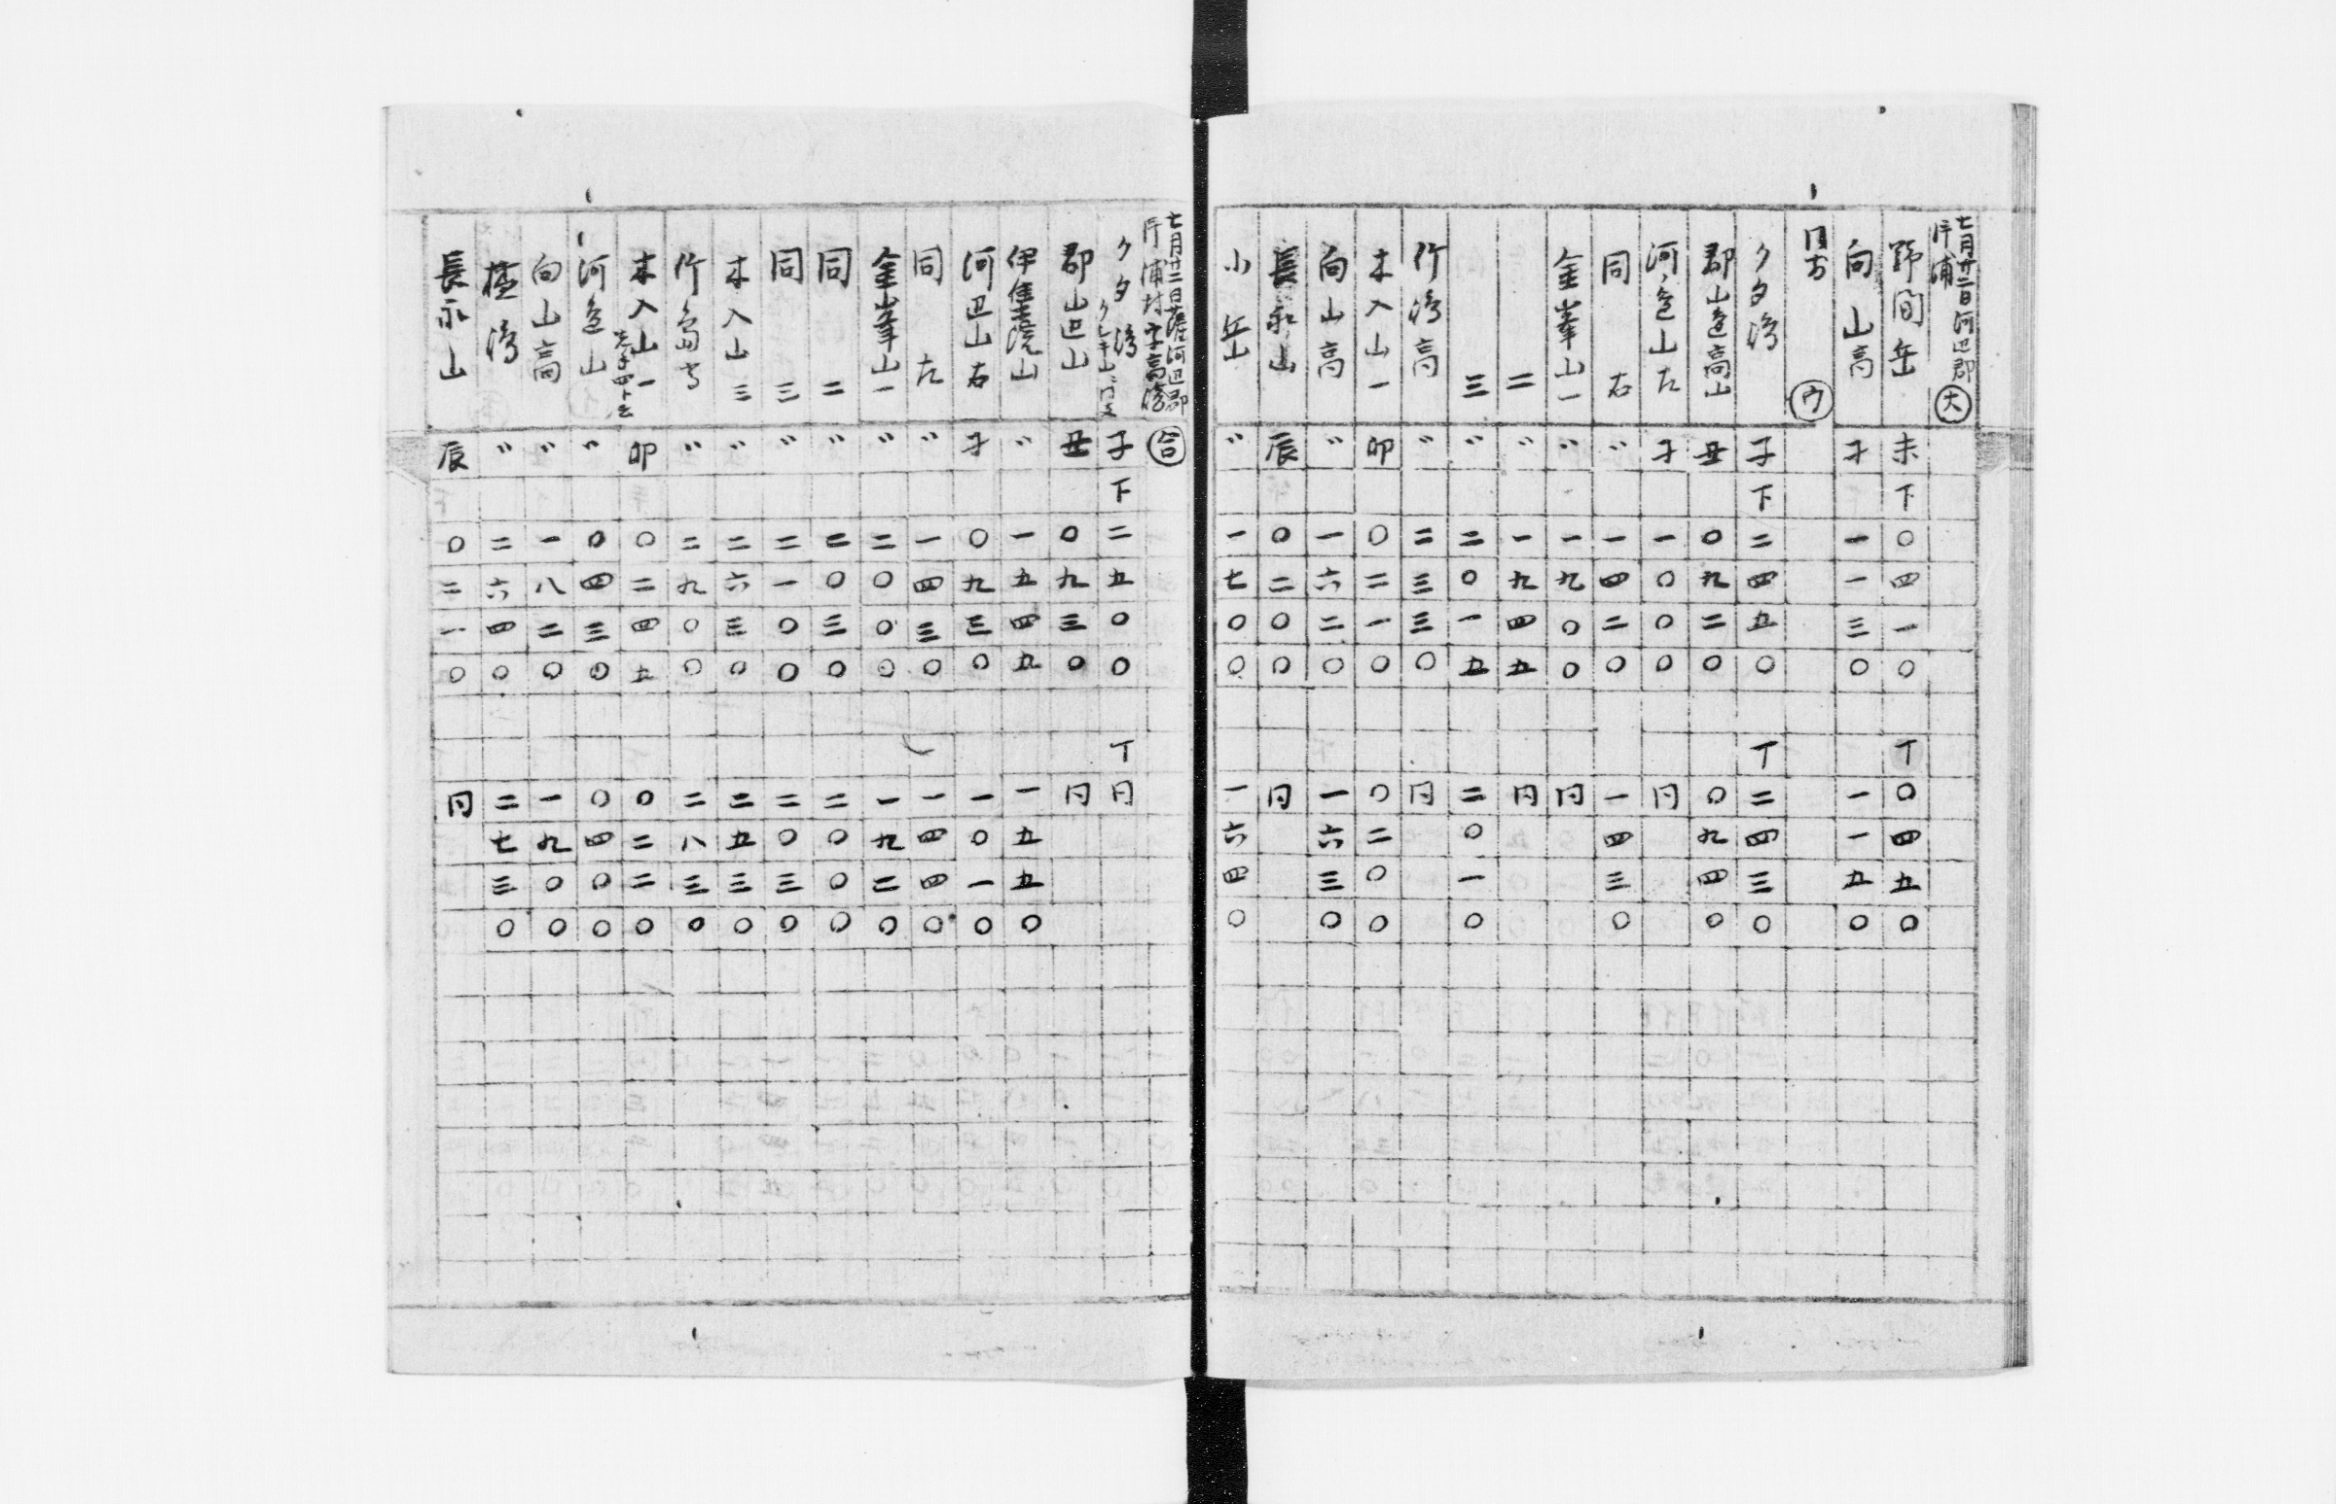 七月廿二日河辺郡
片浦 大
野間岳 未 下 〇四一〇 丁 〇四五〇
向山高 才 一一三〇 一一五〇
同方 ウ
夕湾 子 下 二四五〇 丁 二四三〇
郡山邉高山 丑 〇九二〇 〇九四〇
河邉山左 才 一〇〇〇 同
同右 〃 一四二〇 一四三〇
金峯山一 〃 一九〇〇 同
二 〃 一九四五 同
三 〃 二〇一五 二〇一〇
竹湾高 〃 二三三〇 同
木入山一 卯 〇二一〇 〇二〇〇
向山高 〃 一六二〇 一六三〇
長永山 辰 〇二〇〇 同
小岳 〃 一七〇〇 一六四〇
七月廿二日 河辺郡
片浦村字高湾 合
夕湾 子 下 二五〇〇 丁 同
郡山辺山 丑 〇九三〇 同
伊集院山 〃 一五四五 一五五〇
河辺山右 才 〇九三〇 一〇一〇
同左 〃 一四三〇 一四四〇
金峯山一 〃 二〇〇〇 一九二〇
同二 〃 二〇三〇 二〇〇〇
同三 〃 二一〇〇 二〇三〇
木入山三 〃 二六三〇 二五三〇
竹島 〃 二九〇〇 二八三〇
木入山一 卯 〇二四五 〇二二〇
河邉山 〃 〇四三〇 〇四〇〇
向山高 〃 一八二〇 一九〇〇
湾 〃 二六四〇 二七三〇
長永山 辰 〇二一〇 同